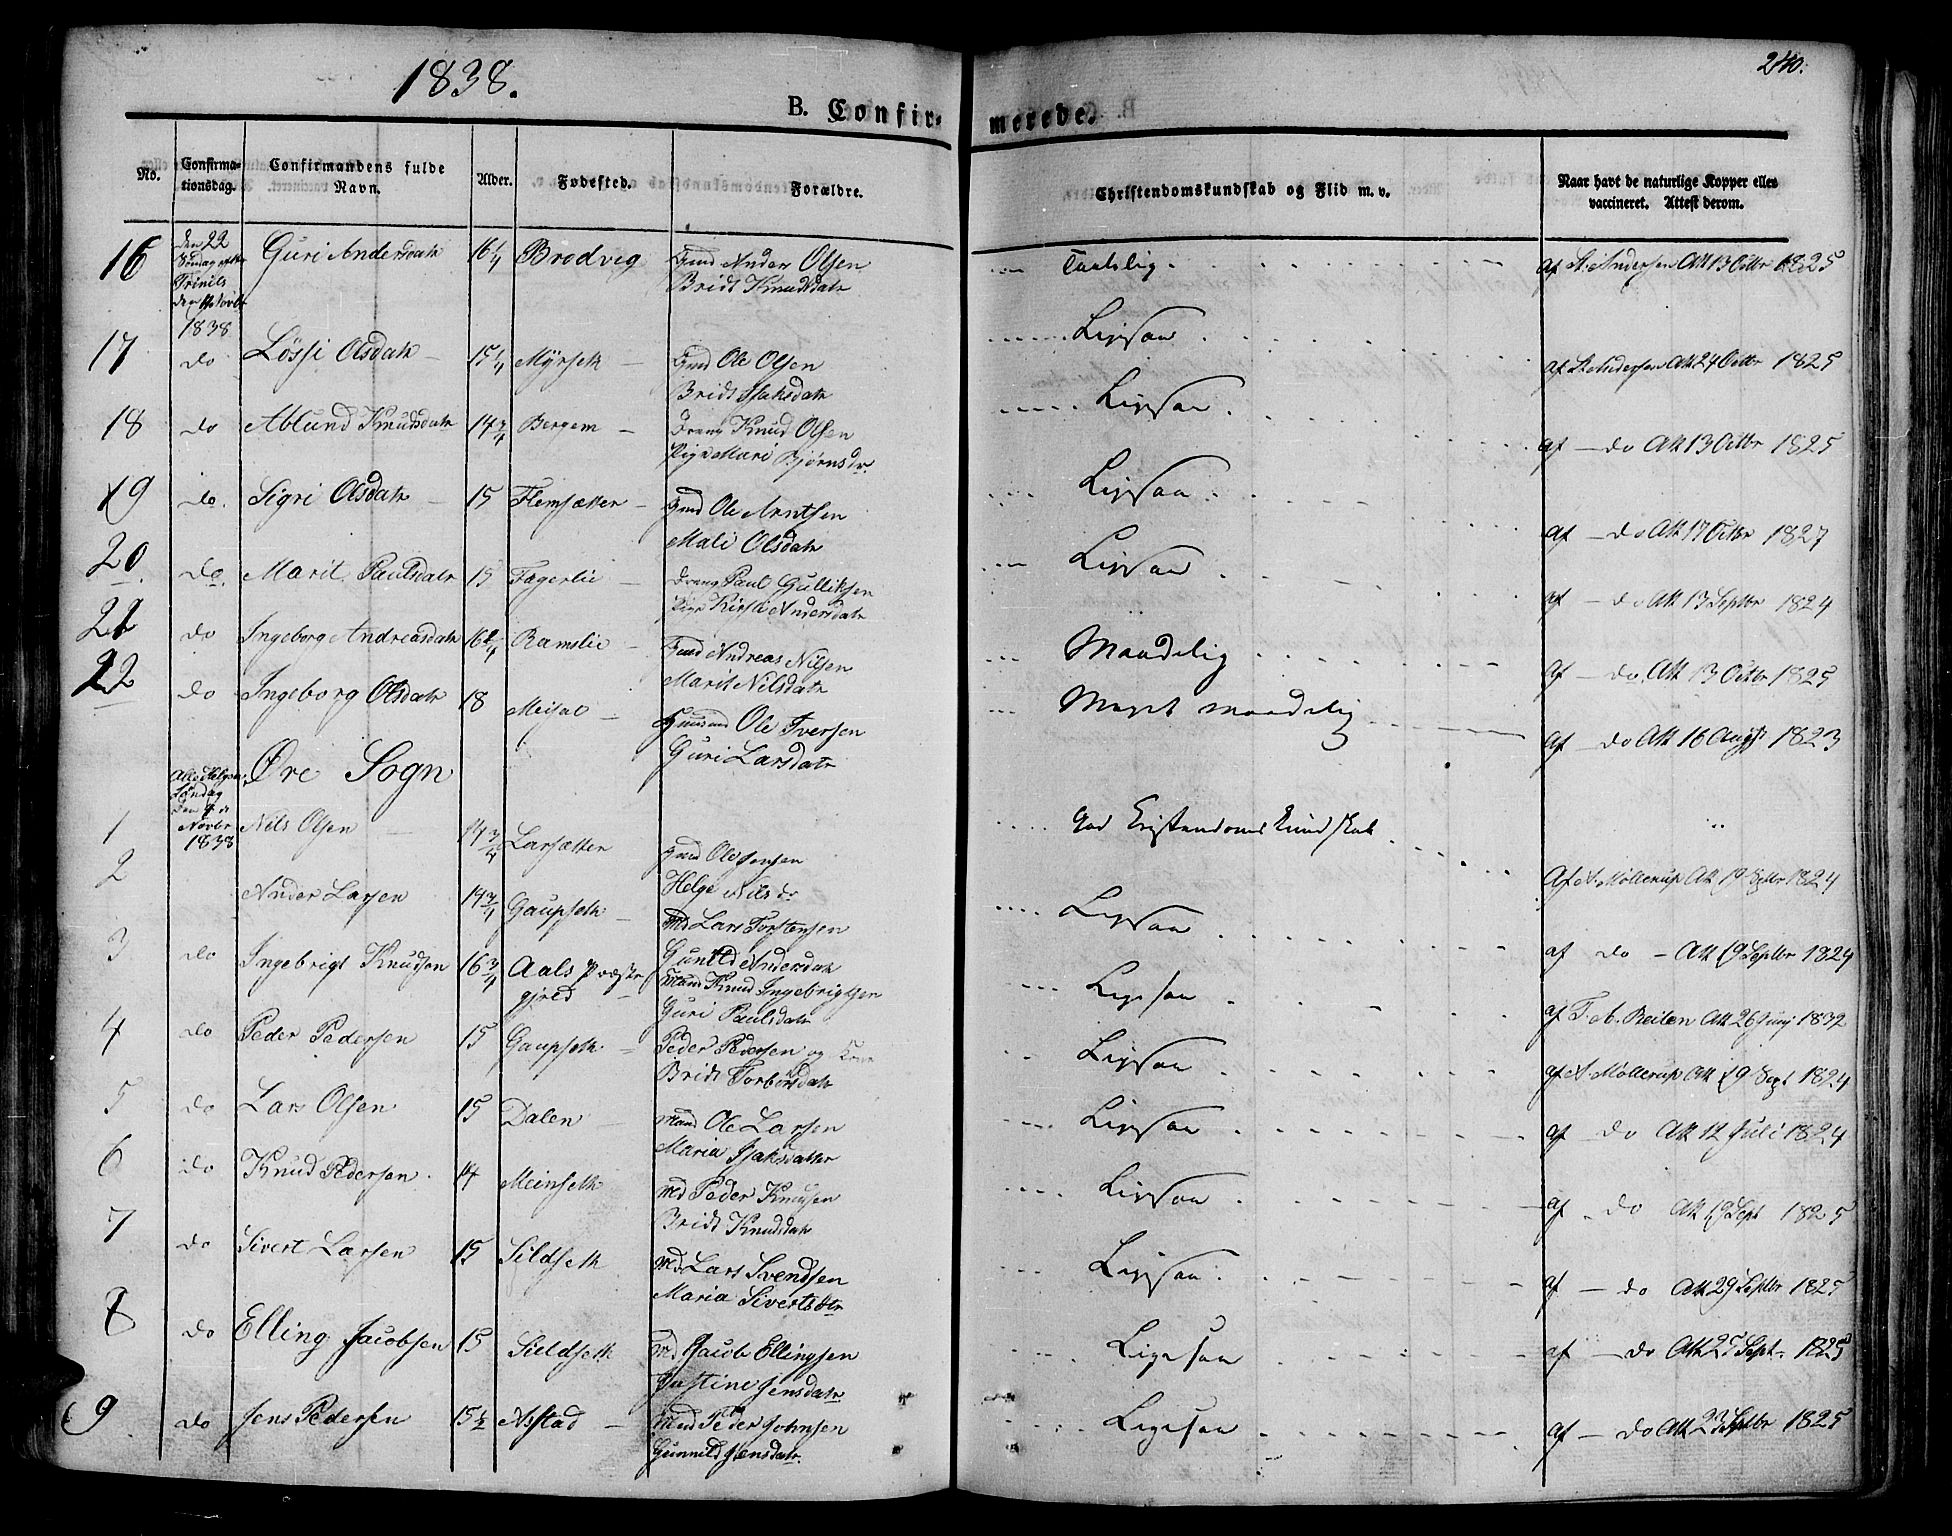 1838.
240.
B. Confirmerede.
No.
Confirmationsdag.
Confirmandens fulde Navn.
Alder.
Fødested.
Forældre.
Christendomskundskab og Flid m. v.
Naar havt de naturlige Kopper eller vaccineret. Attest derom.
16 den 22 Søndag efter Trinits den 11 Novbr 1838 Guri Andersdatr 16 1/4 Brodvig Gmd Anders Olsen Taalelig af St. Andersen Att 13 Octbr 1825
Bridt Knudsdatr
17 do Løssi Olsdatr 15 1/4 Myrseth Gmd Ole Olsen Ligesaa af St. Andersen Att 24 Octbr 1825
Bridt Isaksdatr
18 do Ablund Knudsdatr 14 3/4 Bergem Dreng Knud Olsen Ligesaa af do Att 13 Octbr 1825
Pige Mari Bjørnsdr
19 do Sigri Olsdatr 15 Flemsætter Gmd Ole Arntsen Ligesaa af do Att 17 Octbr 1827
Mali Olsdatr
20 do Marit Paulsdatr 15 Fagerlie Dreng Paul Gulliksen Ligesaa af do Att 13 Septbr 1824
Pige Kirsti Andersdatr
21 do Ingeborg Andreasdatr 16 1/4 Ramslie Andreas Nilsen Maadelig af do Att 13 Octbr 1825
Marit Nilsdatr
22 do Ingeborg Olsdatr 18 Meisal Ole Iversen Meget maadelig af do Att 16 August 1823
Guri Larsdatr
Øre Sogn
1 Alle Helgens Søndag den 4 de Novbr 1838 Nils Olsen 14 3/4 Larsætter Gmd Ole Jensen God Cristendoms Kundskab Af A. Møllerup Att 19 Septbr 1824
Helge Nilsdr
2 Ander Larsen 14 3/4 Gaupseth Md Lars Torstensen Ligesaa af do Att 19 Septbr 1824
Gunild Andersdatr
3 do Ingebrigt Knudsen 16 3/4 Aals Præstegjeld Mand Knud Ingebrigtsen Ligesaa af T. A. Beilen Att 26 Junj 1832
Guri Paulsdatr
4 do Peder Pedersen 15 Gaupseth Peder Pedersen og Kone Ligesaa af A. Møllerup Att 19 Sept 1824
Bridt Torborsdatr
5 do Lars Olsen 15 Dalen Mand Ole Larsen Ligesaa af do Att 12 Juli 1824
Maria Isaksdatter
6 do Knud Pedersen 14 Meinseth Md Peder Knudsen Ligesaa af do Att 19 Sept 1825
Bridt Knudsdatr
7 do Sivert Larsen 15 Sildseth Md Lars Svendsen Ligesaa af do Att 29 Septbr 1825
Maria Sivertsdtr
8 do Elling Jacobsen 15 Sieldseth Md Jacob Ellingsen Ligesaa af do Att 25 Sept. 1825
Justine Jensdatr
9 do Jens Pedersen 15 1/2 Aspstad Mand Peder Johnsen Ligesaa af do Att 23 Septbr 1825
Gunnild Jensdatr